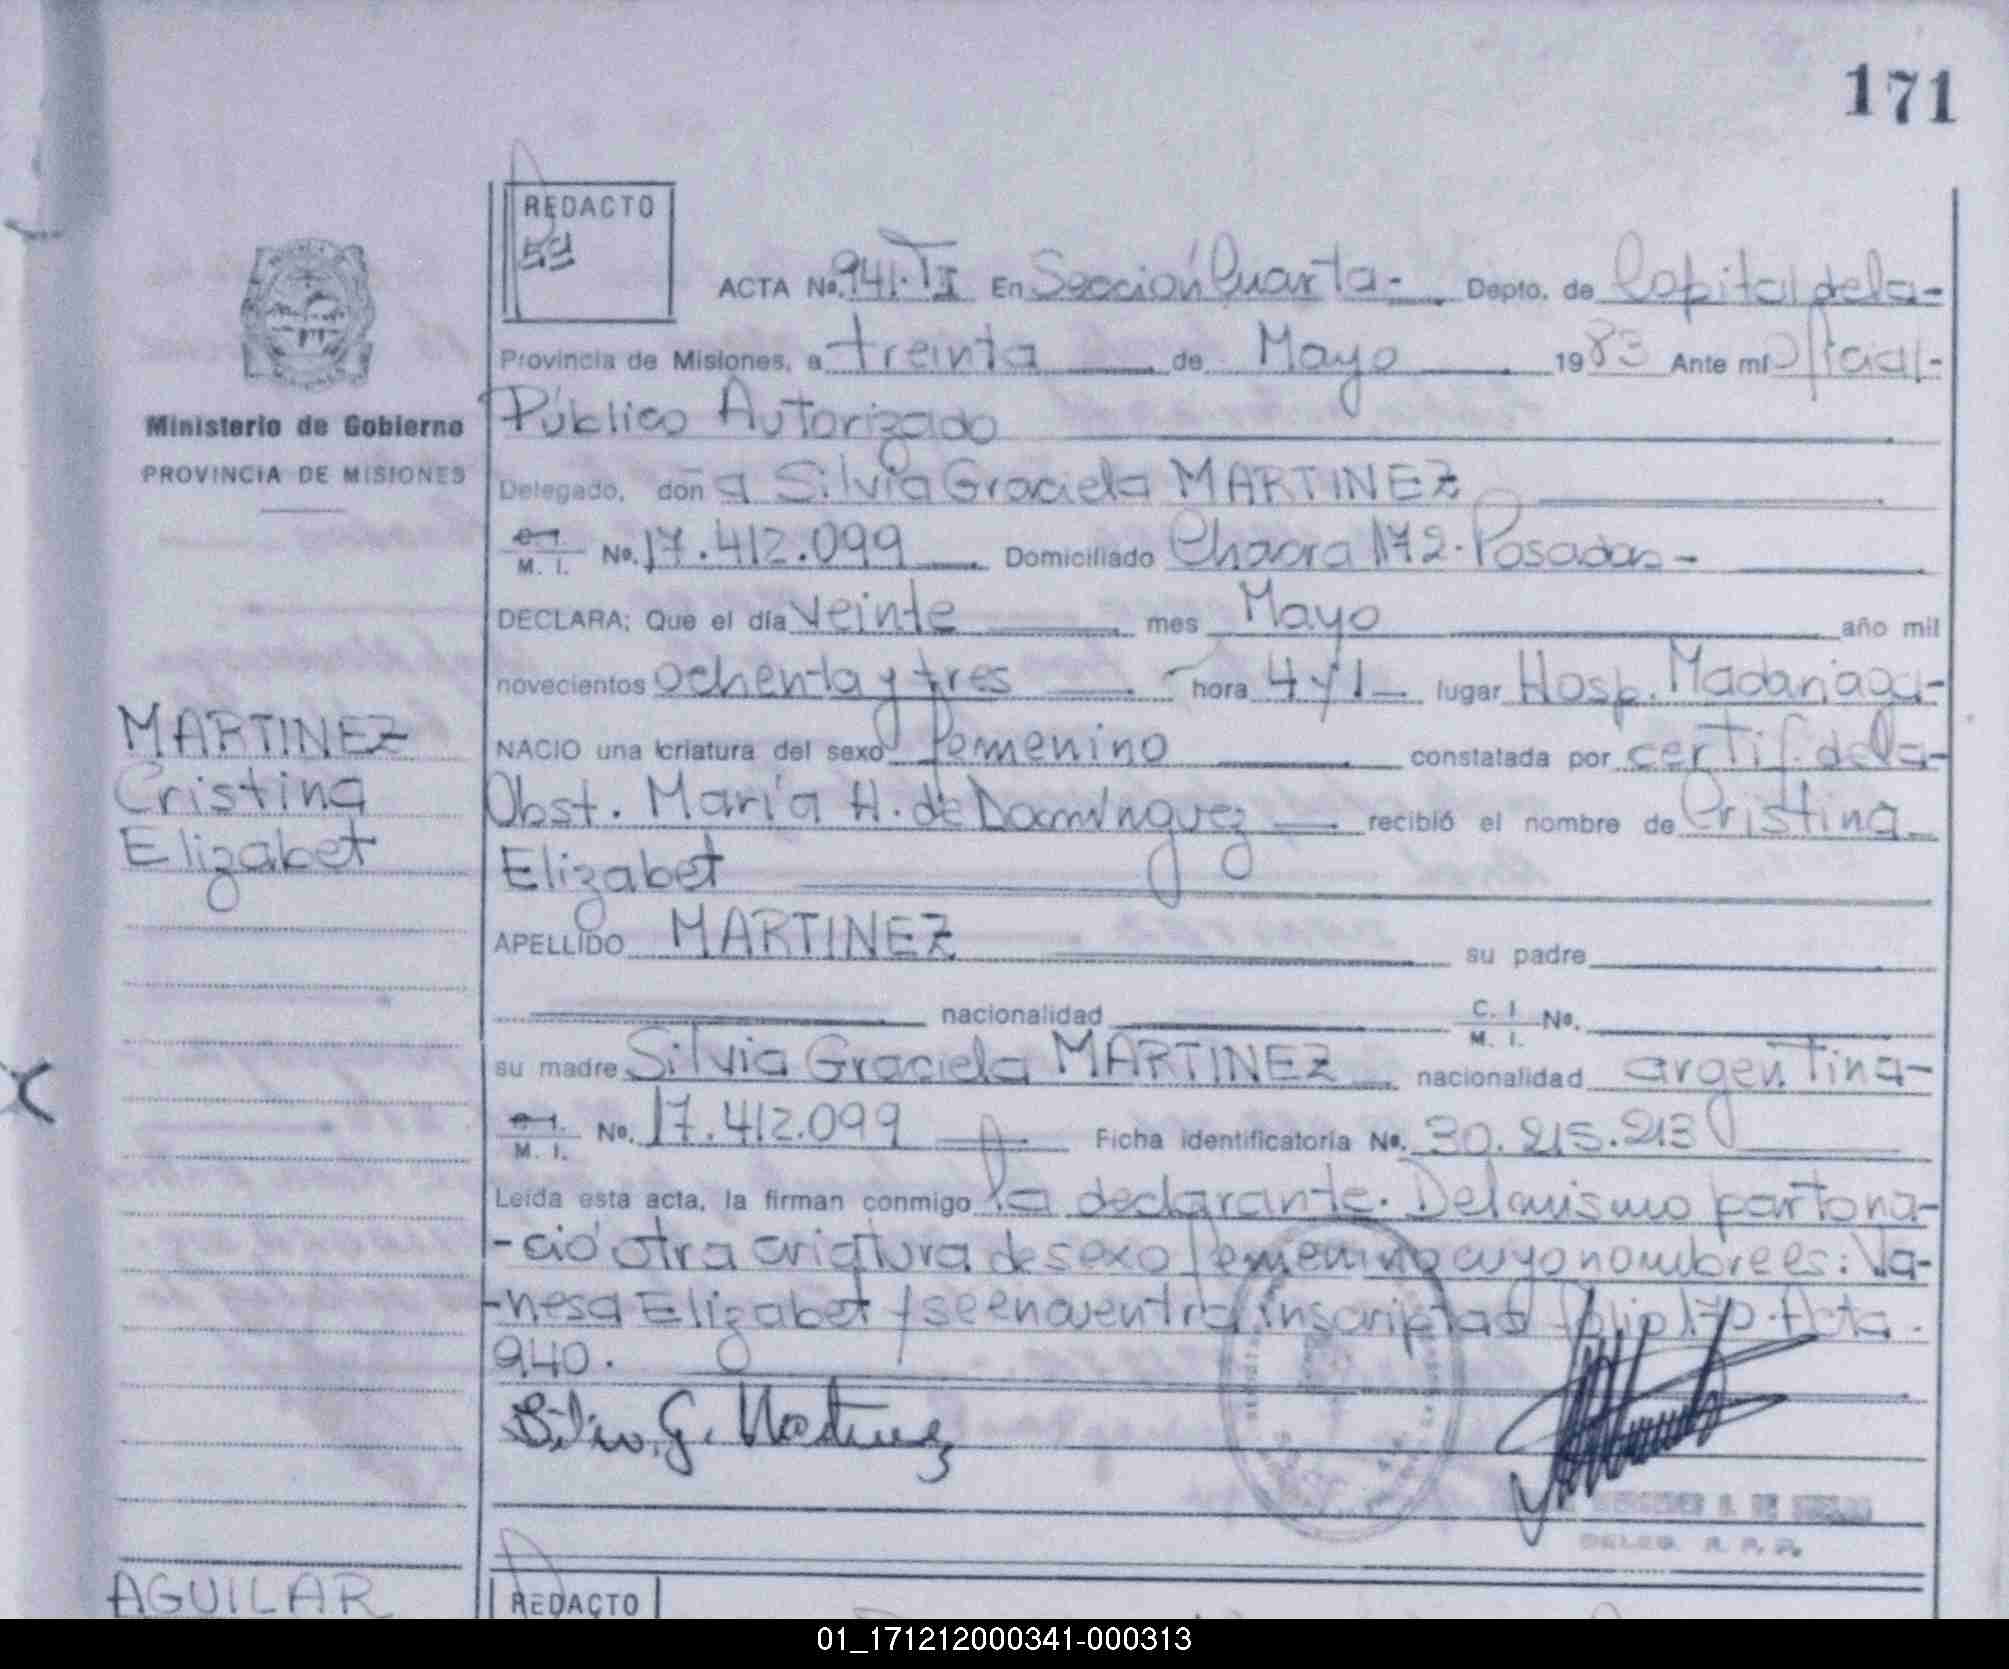 171
REDACTO
ACTA No. 941. TI En Sección Cuarta - Depto. de Capital de la -
Provincia de Misiones, a treinta de Mayo 1983 Ante mí Oficial -
Ministerio de Gobierno
PROVINCIA DE MISIONES
Público Autorizado
Delegado, don a Silvia Graciela MARTINEZ
M. I. No. 17.412.099 Domiciliado Chacra 172. Posadas -
DECLARA: Que el día veinte mes Mayo año mil
novecientos ochenta y tres hora 4 y 1 lugar Hosp. Madariaga -
MARTINEZ
Cristina
Elizabet
NACIO una criatura del sexo femenino constatada por certif. de la -
Obst. María H. de Domínguez recibió el nombre de Cristina
Elizabet
APELLIDO MARTINEZ su padre
nacionalidad C. I. M. I. No.
su madre Silvia Graciela MARTINEZ nacionalidad argentina -
M. I. No. 17.412.099 Ficha identificatoria No. 30.215.213
Leída esta acta, la firman conmigo la declarante. Del mismo parto na-
-ció otra criatura de sexo femenino cuyo nombre es: Va-
-nesa Elizabet y se encuentra inscripta folio 170. Acta
940.
Silvia. G. Martinez
DELEG. R. P. P.
AGUILAR
REDACTO
01_171212000341-000313